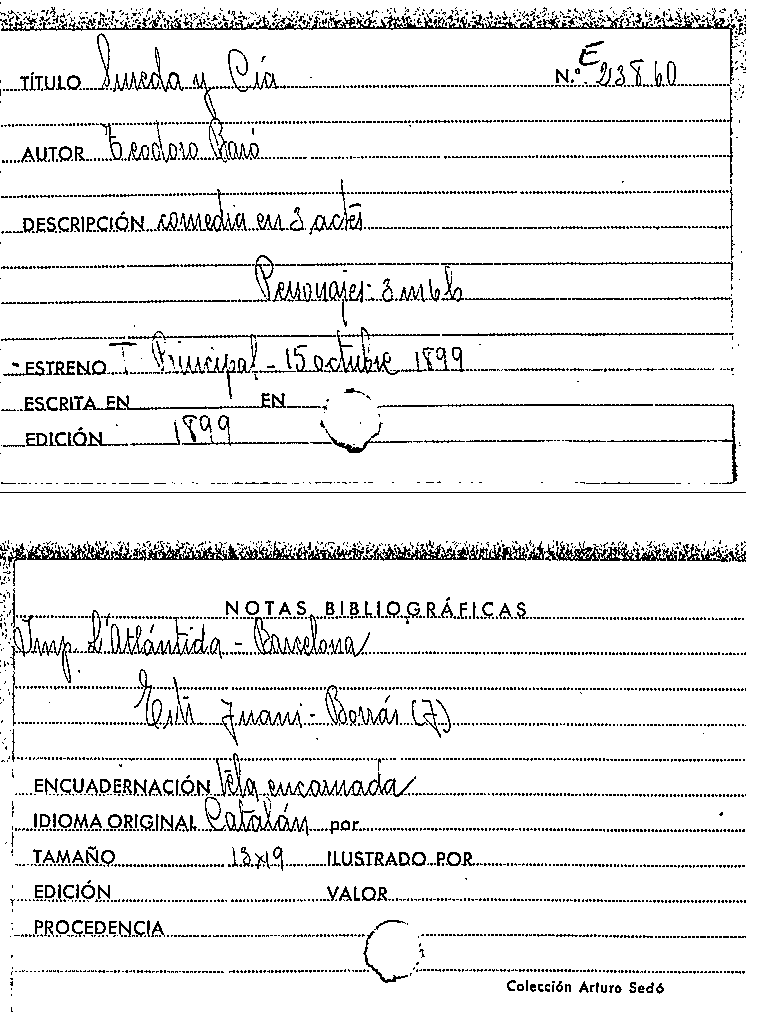 TÍTULO Sureda y Cía N.º E 23860
AUTOR Teodoro Baró
DESCRIPCIÓN comedia en 3 actes
Personajes: 3 m 6 h
ESTRENO T Principal - 15 octubre 1899
ESCRITA EN EN
EDICIÓN 1899
NOTAS BIBLIOGRÁFICAS
Imp. L'Atlántida - Barcelona
Juani - Borrás (J)
ENCUADERNACIÓN tela encarnada
IDIOMA ORIGINAL Catalán por
TAMAÑO 13x19 ILUSTRADO POR
EDICIÓN VALOR
PROCEDENCIA
Colección Arturo Sedó